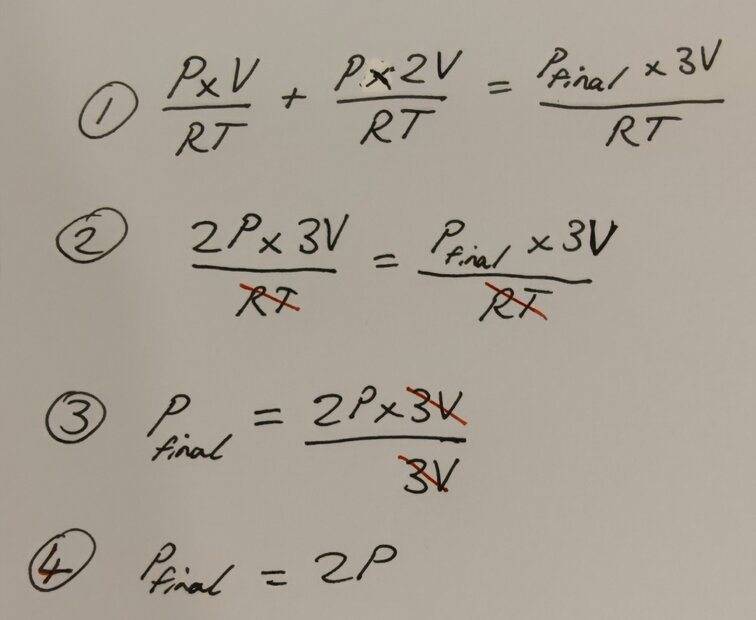 ① P×V/RT + P×2V/RT = P_final × 3V/RT
② 2P×3V/RT = P_final × 3V/RT
③ P_final = 2P×3V/3V
④ P_final = 2P